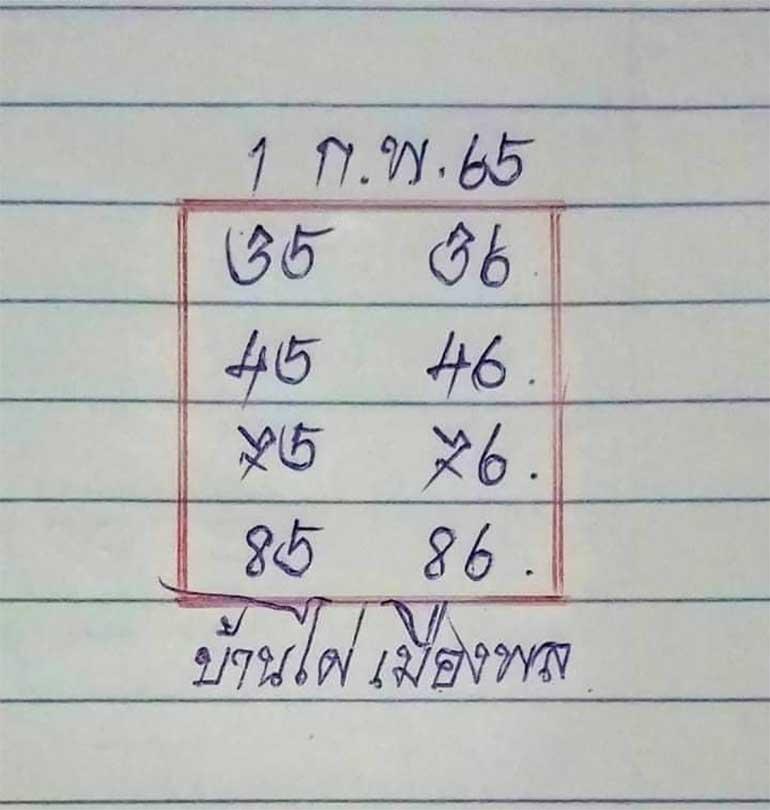 1 ก.พ.65
35 36.
45 46.
75 76.
85 86.
บ้านไผ่ เมืองพล